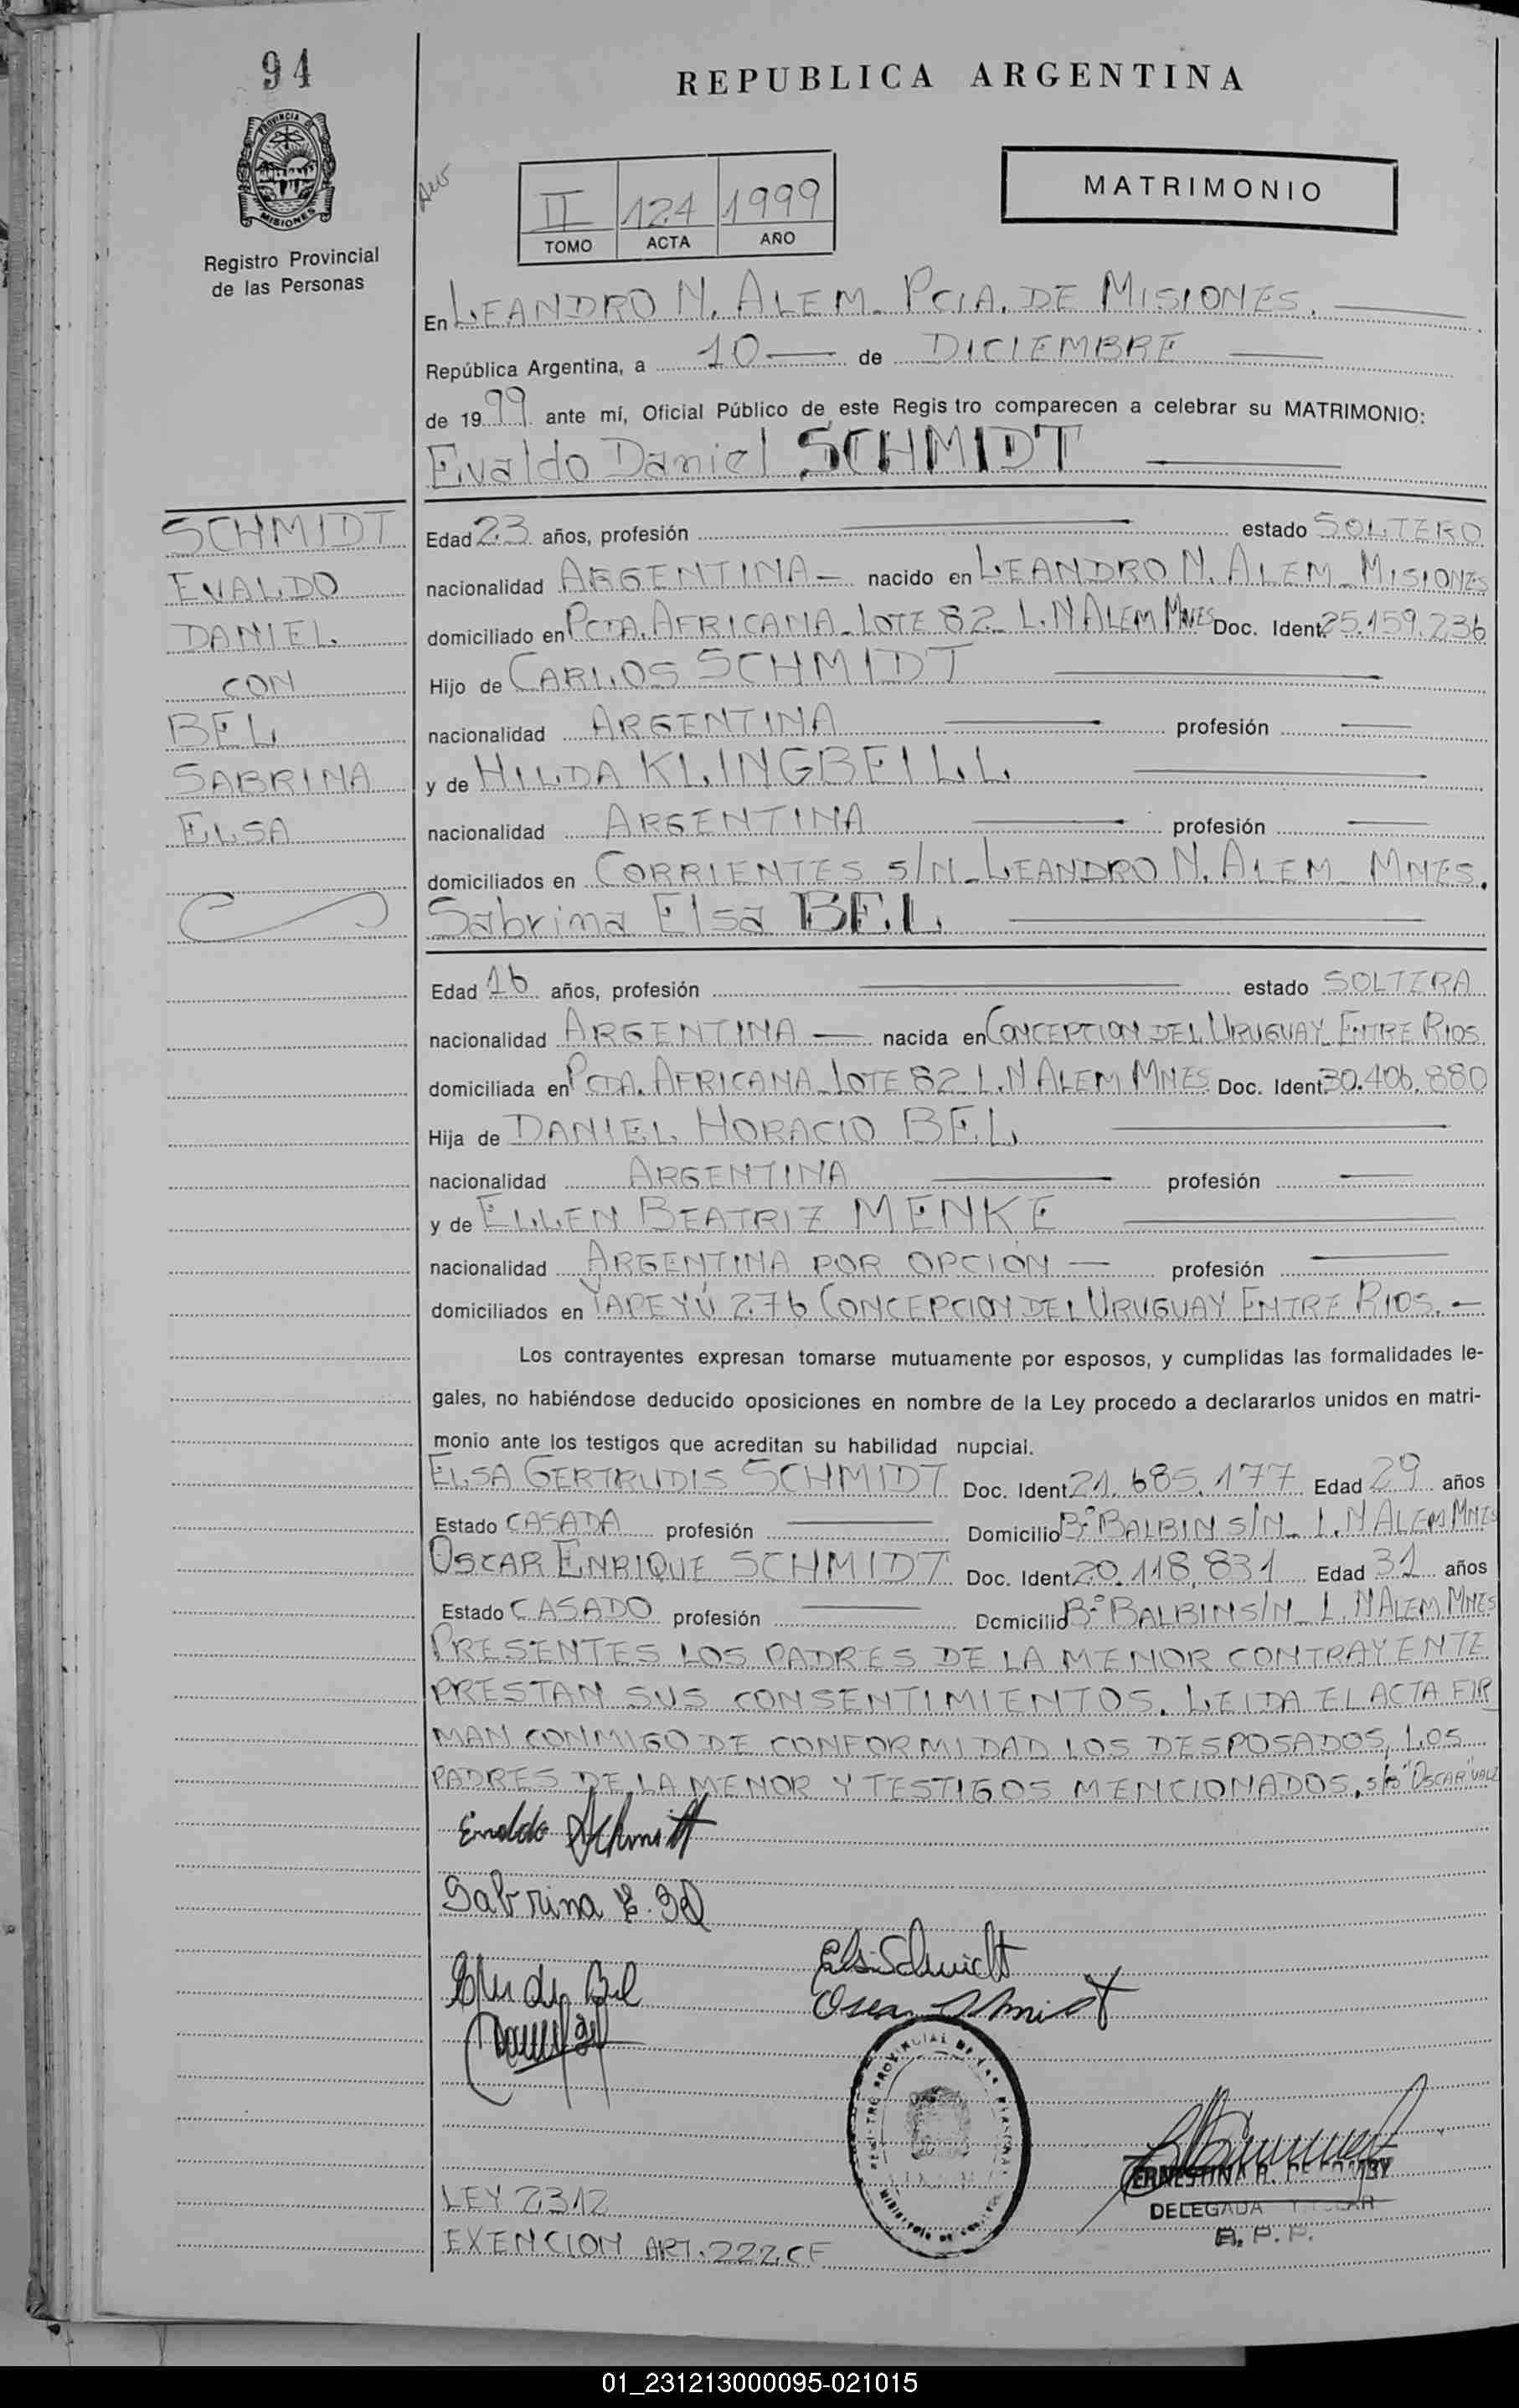 94
REPUBLICA ARGENTINA
PROVINCIA
MISIONES
Registro Provincial
de las Personas
II 124 1999
TOMO ACTA AÑO
MATRIMONIO
En LEANDRO N. ALEM - PCIA. DE MISIONES.
República Argentina, a 10 de DICIEMBRE
de 1999 ante mí, Oficial Público de este Regis tro comparecen a celebrar su MATRIMONIO:
Evaldo Daniel SCHMIDT
SCHMIDT
EVALDO
DANIEL
CON
BEL
SABRINA
ELSA
Edad 23 años, profesión estado SOLTERO
nacionalidad ARGENTINA - nacido en LEANDRO N. ALEM - MISIONES
domiciliado en PCDA. AFRICANA - LOTE 82 - L.N ALEM MNES Doc. Ident. 25.159.236
Hijo de CARLOS SCHMIDT
nacionalidad ARGENTINA profesión
y de HILDA KLINGBEILL
nacionalidad ARGENTINA profesión
domiciliados en CORRIENTES S/N - LEANDRO N. ALEM - MNES.
Sabrina Elsa BEL
Edad 16 años, profesión estado SOLTERA
nacionalidad ARGENTINA - nacida en CONCEPCION DEL URUGUAY - ENTRE RIOS
domiciliada en PCDA. AFRICANA - LOTE 82 - L.N ALEM MNES Doc. Ident. 30.406.880
Hija de DANIEL HORACIO BEL
nacionalidad ARGENTINA profesión
y de ELLEN BEATRIZ MENKE
nacionalidad ARGENTINA POR OPCIÓN - profesión
domiciliados en YAPEYÚ 276 CONCEPCION DEL URUGUAY ENTRE RIOS. -
Los contrayentes expresan tomarse mutuamente por esposos, y cumplidas las formalidades le-
gales, no habiéndose deducido oposiciones en nombre de la Ley procedo a declararlos unidos en matri-
monio ante los testigos que acreditan su habilidad nupcial.
ELSA GERTRUDIS SCHMIDT Doc. Ident. 21.685.177 Edad 29 años
Estado CASADA profesión Domicilio Bº BALBIN S/N - L.N ALEM MNES
OSCAR ENRIQUE SCHMIDT Doc. Ident. 20.118.831 Edad 31 años
Estado CASADO profesión Domicilio Bº BALBIN S/N - L.N ALEM MNES
PRESENTES LOS PADRES DE LA MENOR CONTRAYENTE
PRESTAN SUS CONSENTIMIENTOS. LEIDA EL ACTA FIR
MAN CONMIGO DE CONFORMIDAD LOS DESPOSADOS, LOS
PADRES DE LA MENOR Y TESTIGOS MENCIONADOS. s/b "OSCAR" VALE
Evaldo Schmidt
Sabrina E. Bel
Elsa Schmidt
Oscar Schmidt
ERNESTINA
DELEGADA TITULAR
R. P. P.
LEY 2312
EXENCION ART. 222 CF
01_231213000095-021015